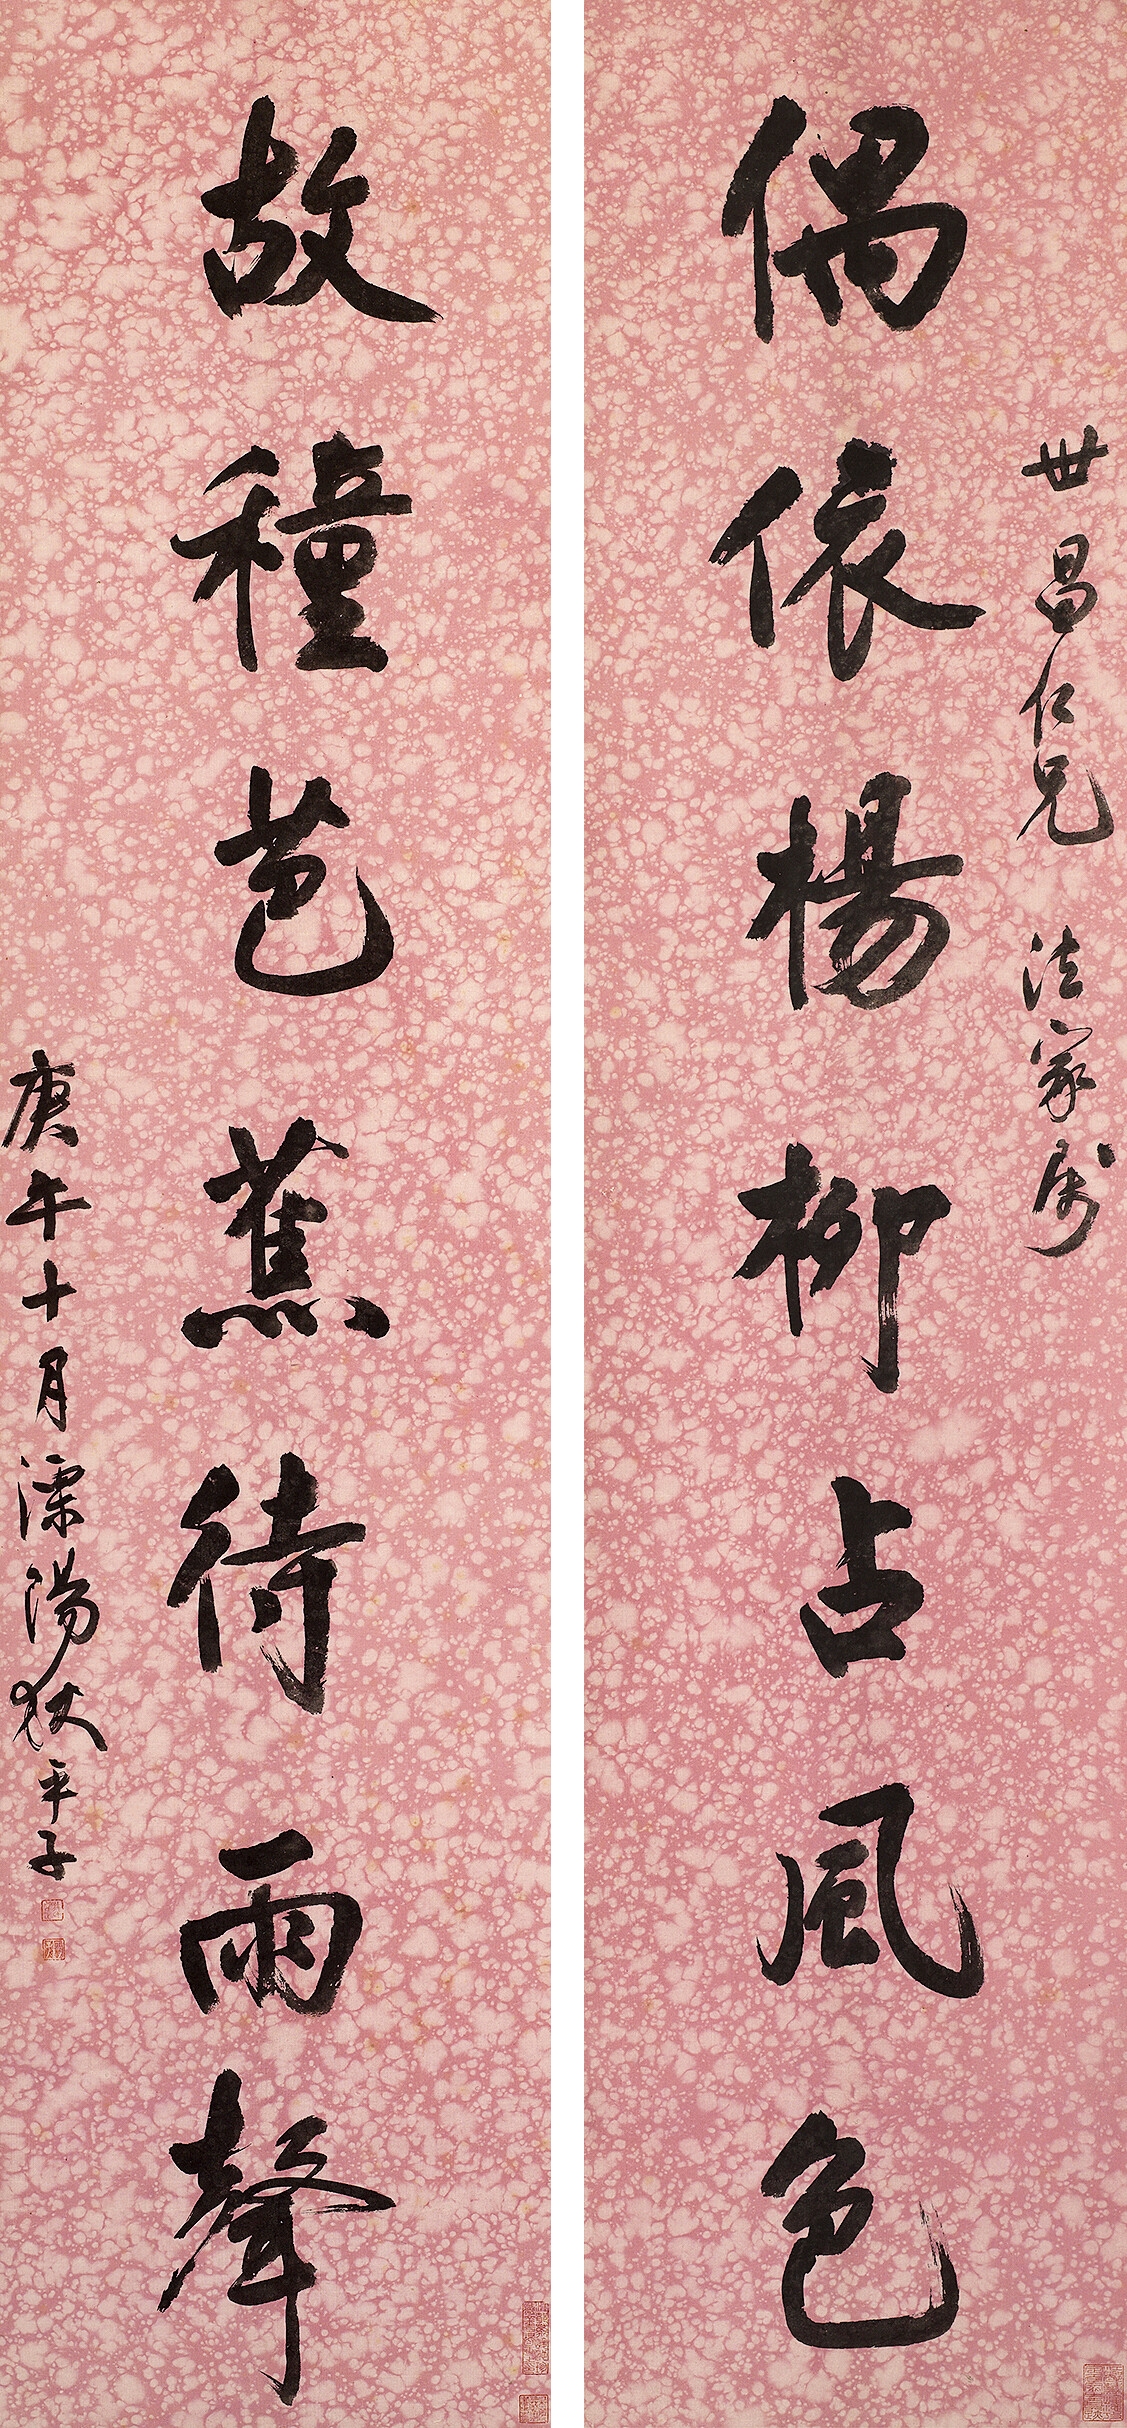 世昌仁兄 法家属
偶依楊柳占風色
故穜芭蕉待雨聲
庚午十月溧陽狄平子